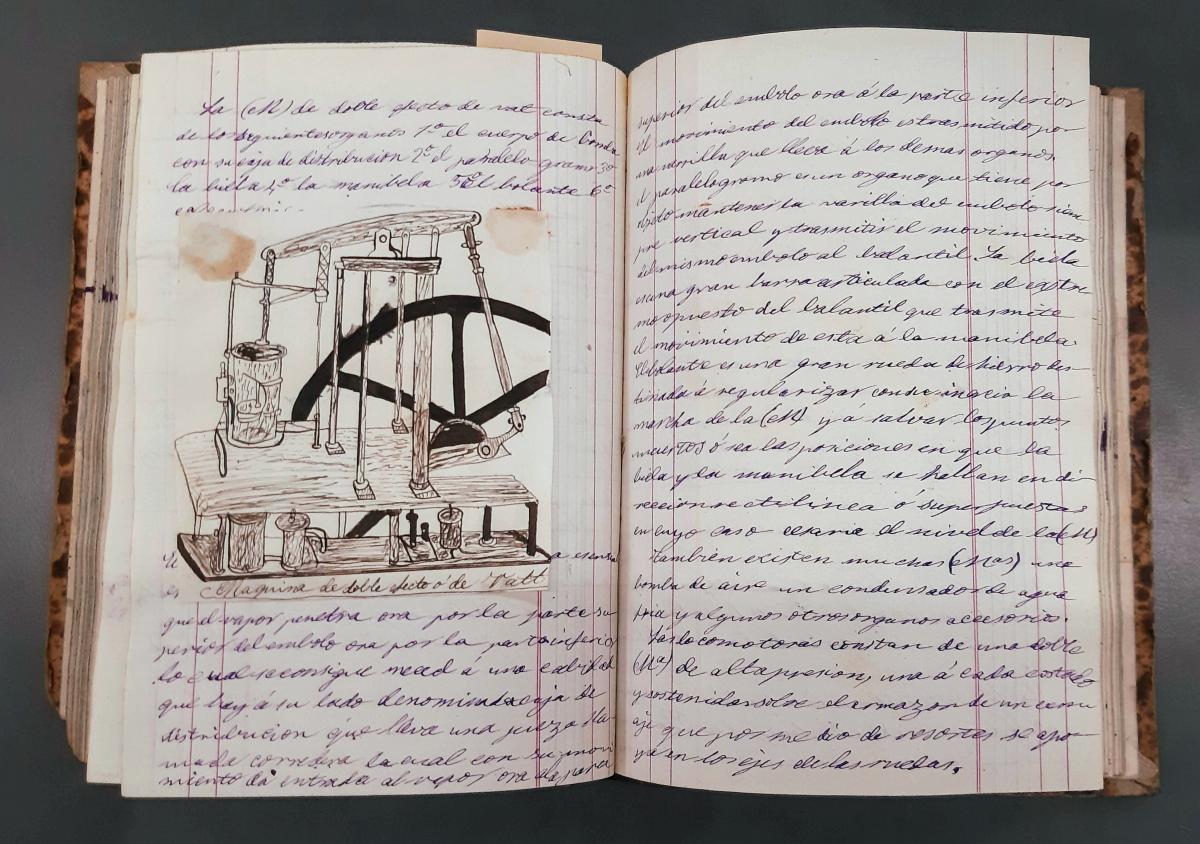 La (M) de doble efecto de vat consta
de los siguientes organos 1º el cuerpo de bomba
con su caja de distribucion 2º el paralelo gramo 3º
la biella 4º la manibela 5º El bolante 6º
Maquina de doble efecto ó de Vatt
que el vapor penetra ora por la parte su
perior del embolo ora por la parte inferior
lo cual se consigue mecd á una cabidad
que hay á su lado denominada caja de
distribucion que lleva una pieza lla
mada corredera la cual con su movi
miento da entrada al vapor ora á la parte
superior del embolo ora á la parte inferior
El movimiento del embolo es trasmitido por
una varilla que lleva á los demas organos.
El paralelogramo es un organo que tiene por
objeto mantener la varilla del embolo siem
pre vertical y trasmitir el movimiento
del mismo embolo al balantil La biela
es una gran barra articulada con el extre
mo opuesto del balantil que trasmite
el movimiento de esta á la manibela.
El bolante es una gran rueda de hierro des
tinada á regularizar con su inercia la
marcha de la (M) y á salvar los puntos
muertos ó sea las posiciones en que la
biela y la manibela se hallan en di
reccion rectilinea ó superpuestas
en cuyo caso el nivel de la (M)
Tambien existen muchas (Mas) una
bomba de aire un condensador de agua
fria y algunos otros organos acesorios.
Las locomotoras constan de una doble
(Mª) de alta presion, una á cada costado
y sostenidas sobre el armazon de un carru
aje que por medio de resortes se apo
ya en los ejes de las ruedas.